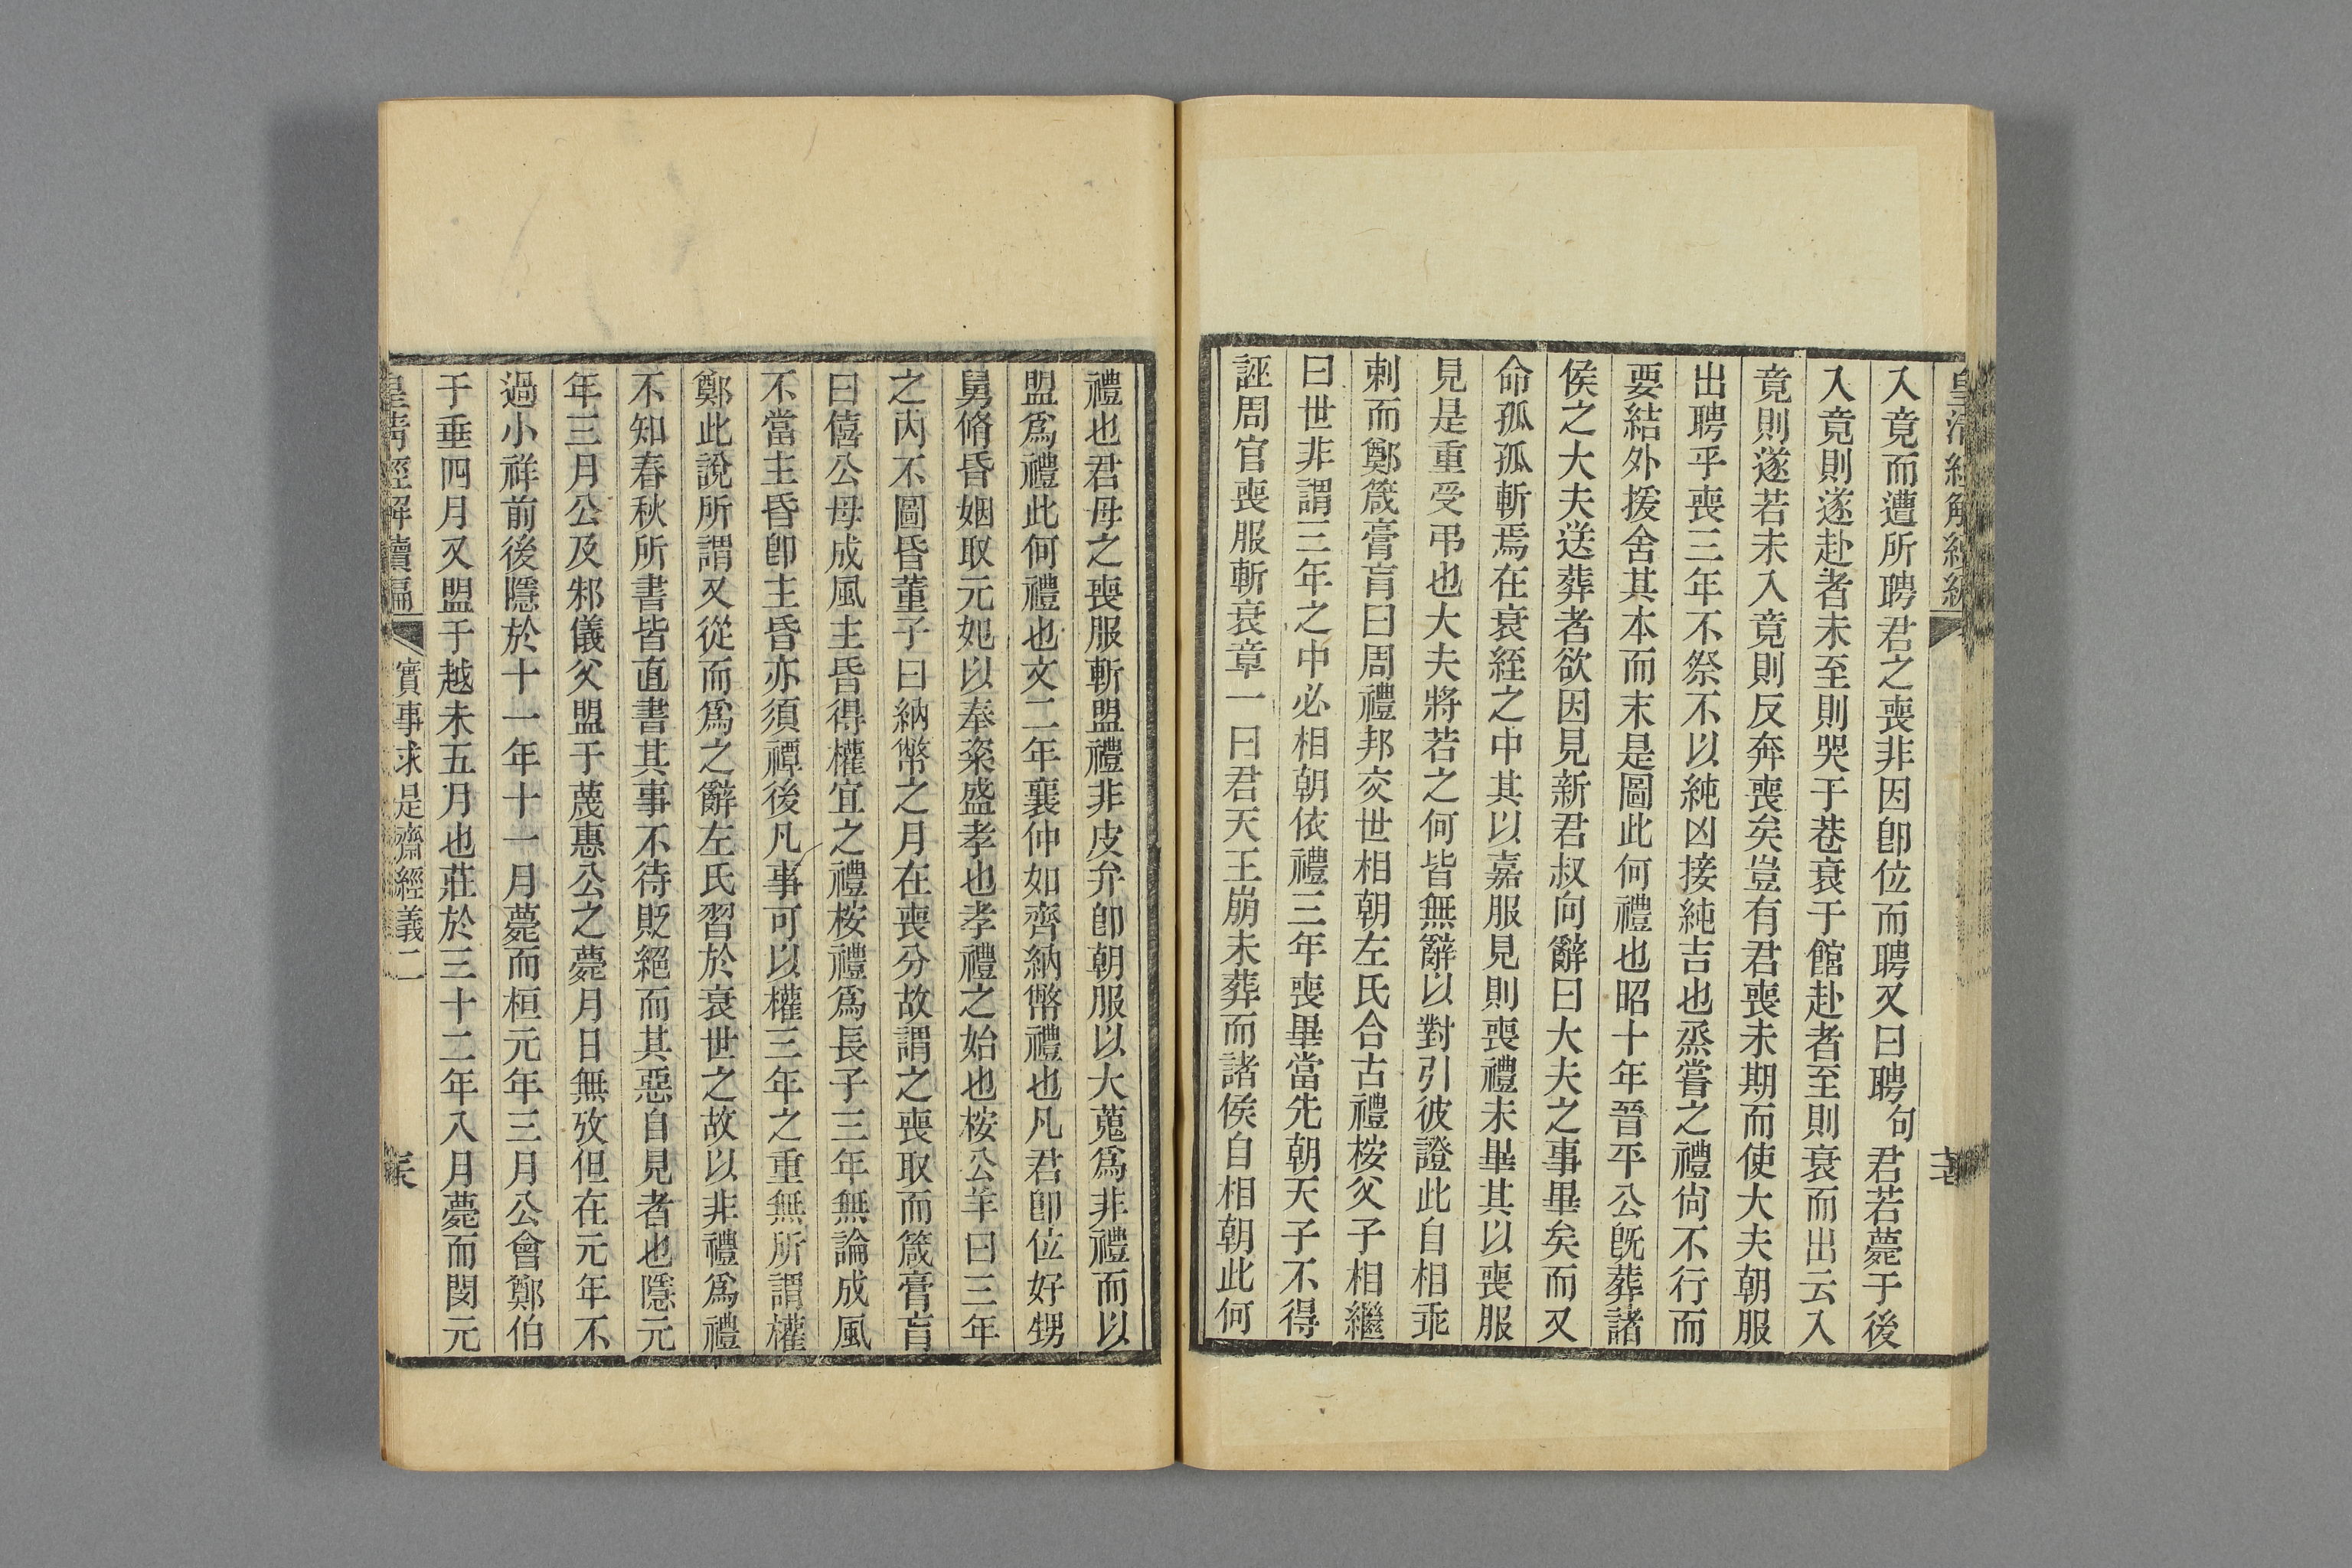 入竟而遭所聘君之喪非因卽位而聘又曰聘句君若薨于後
入竟則遂赴者未至則哭于巷衰于館赴者至則衰而出云入
竟則遂若未入竟則反奔喪矣豈有君喪未期而使大夫朝服
出聘乎喪三年不祭不以純凶接純吉也烝嘗之禮尙不行而
要結外援舍其本而末是圖此何禮也昭十年晉平公旣葬諸
侯之大夫送葬者欲因見新君叔向辭曰大夫之事畢矣而又
命孤孤斬焉在衰絰之中其以嘉服見則喪禮未畢其以喪服
見是重受弔也大夫將若之何皆無辭以對引彼證此自相乖
刺而鄭箴膏肓曰周禮邦交世相朝左氏合古禮桉父子相繼
曰世非謂三年之中必相朝依禮三年喪畢當先朝天子不得
誣周官喪服斬衰章一曰君天王崩未葬而諸侯自相朝此何
禮也君母之喪服斬盟禮非皮弁卽朝服以大蒐爲非禮而以
盟爲禮此何禮也文二年襄仲如齊納幣禮也凡君卽位好甥
舅脩昏姻取元妃以奉粢盛孝也孝禮之始也桉公羊曰三年
之内不圖昏董子曰納幣之月在喪分故謂之喪取而箴膏肓
曰僖公母成風主昏得權宜之禮桉禮爲長子三年無論成風
不當主昏卽主昏亦須禫後凡事可以權三年之重無所謂權
鄭此說所謂又從而爲之辭左氏習於衰世之故以非禮爲禮
不知春秋所書皆直書其事不待貶絕而其惡自見者也隱元
年三月公及邾儀父盟于蔑惠公之薨月日無攷但在元年不
過小祥前後隱於十一年十一月薨而桓元年三月公會鄭伯
于垂四月又盟于越未五月也莊於三十二年八月薨而閔元
皇淸經解續編 實事求是齋經義二